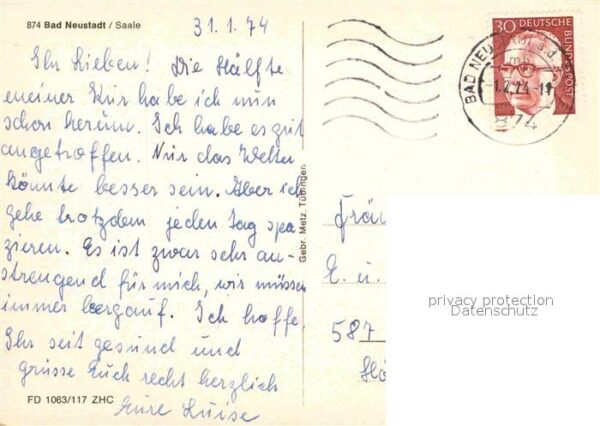 874 Bad Neustadt / Saale
31.1.74
Ihr Lieben! Die Hälfte
meiner Kur habe ich nun
schon herum. Ich habe es gut
angetroffen. Nur das Wetter
könnte besser sein. Aber ich
gehe trotzdem jeden Tag spa
zieren. Es ist zwar sehr an-
strengend für mich, wir müssen
immer bergauf. Ich hoffe,
Ihr seit gesund und
grüsse Euch recht herzlich
Eure Luise
FD 1063/117 ZHC
Gebr. Metz, Tübingen
30 DEUTSCHE
BUNDESPOST
BAD NEU
-1.2.74-11
874
E. u.
587
privacy protection
Datenschutz